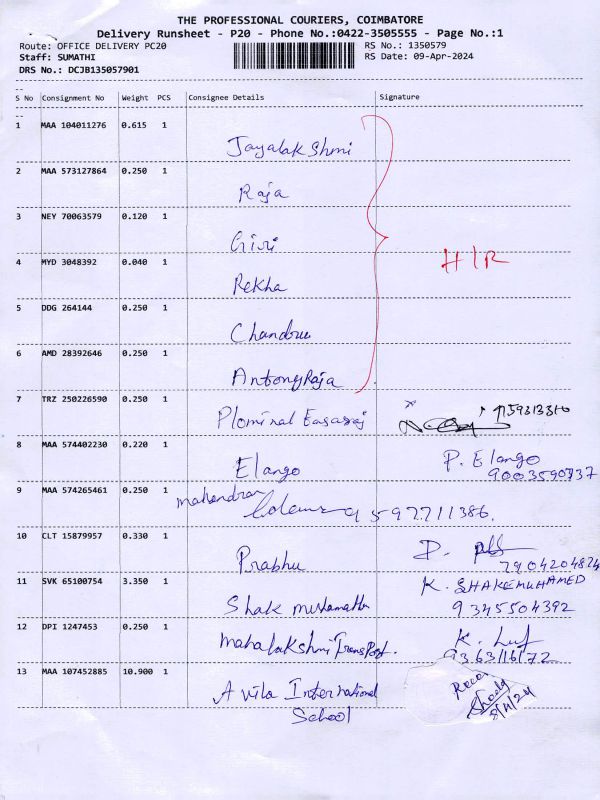 THE PROFESSIONAL COURIERS, COIMBATORE
Delivery Runsheet - P20 - Phone No.:0422-3505555 - Page No.:1
Route: OFFICE DELIVERY PC20
RS No.: 1350579
Staff: SUMATHI
RS Date: 09-Apr-2024
DRS No.: DCJB135057901
S No Consignment No Weight PCS Consignee Details Signature
1 MAA 104011276 0.615 1
Jayalakshmi
2 MAA 573127864 0.250 1
Raja
3 NEY 70063579 0.120 1
Giri
4 MYD 3048392 0.040 1
H/R
Rekha
5 DDG 264144 0.250 1
Chandru
6 AMD 28392646 0.250 1
AntonyRaja
7 TRZ 250226590 0.250 1
Plominal
8 MAA 574402230 0.220 1
Elango P. Elango
9003590737
9 MAA 574265461 0.250 1
mahendran
9597711386.
10 CLT 15879957 0.330 1
Prabhu D.
7904204824
11 SVK 65100754 3.350 1 K. SHAKEMUHAMED
Shak 9345504392
12 DPI 1247453 0.250 1
mahalakshmi TransPort. K.
9363116172
13 MAA 107452885 10.900 1
Avila International
School
8/4/24